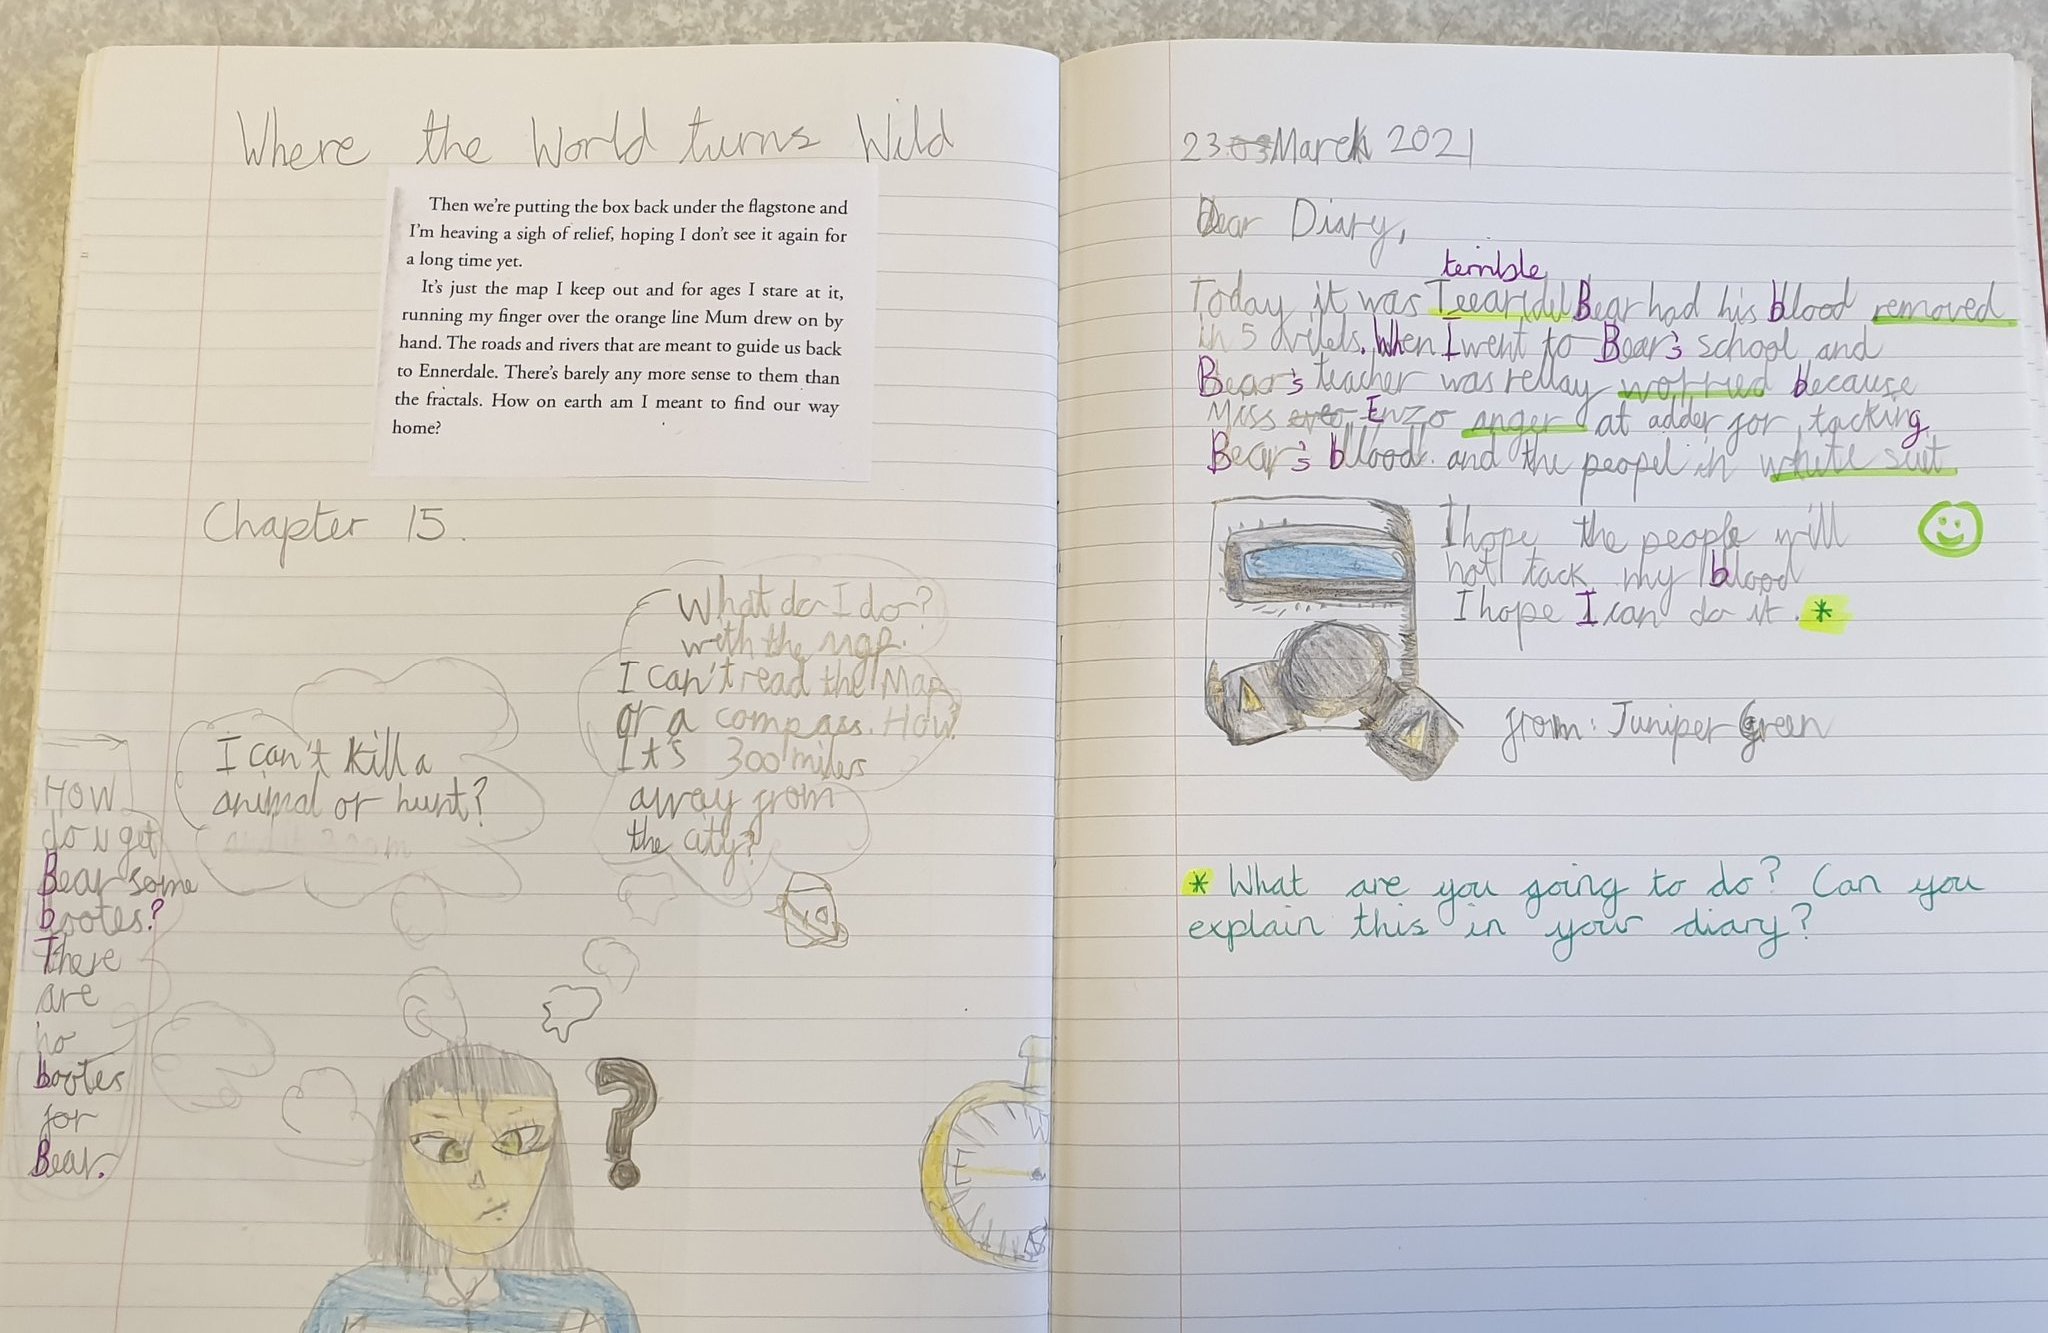 Where the World turns Wild
Then we're putting the box back under the flagstone and
I'm heaving a sigh of relief, hoping I don't see it again for
a long time yet.
It's just the map I keep out and for ages I stare at it,
running my finger over the orange line Mum drew on by
hand. The roads and rivers that are meant to guide us back
to Ennerdale. There's barely any more sense to them than
the fractals. How on earth am I meant to find our way
home?
Chapter 15.
What do I do?
with the map.
I can't read the Map
or a compass. How?
It's 300 miles
away from
the city?
I can't kill a
animal or hunt?
How
do u get
Bear some
bootes?
There
are
no
bootes
for
Bear.
?
W
E
23 March 2021
Dear Diary,
terrible
Today it was Bear had his blood removed
in 5 When I went to Bear's school and
Bear's teacher was rellay worried because
Miss Enzo anger at adder for tacking
Bear's blood. and the peopel in white suit
I hope the people will
not tack my blood
I hope I can do it. *
from: Juniper Green
* What are you going to do? Can you
explain this in your diary?